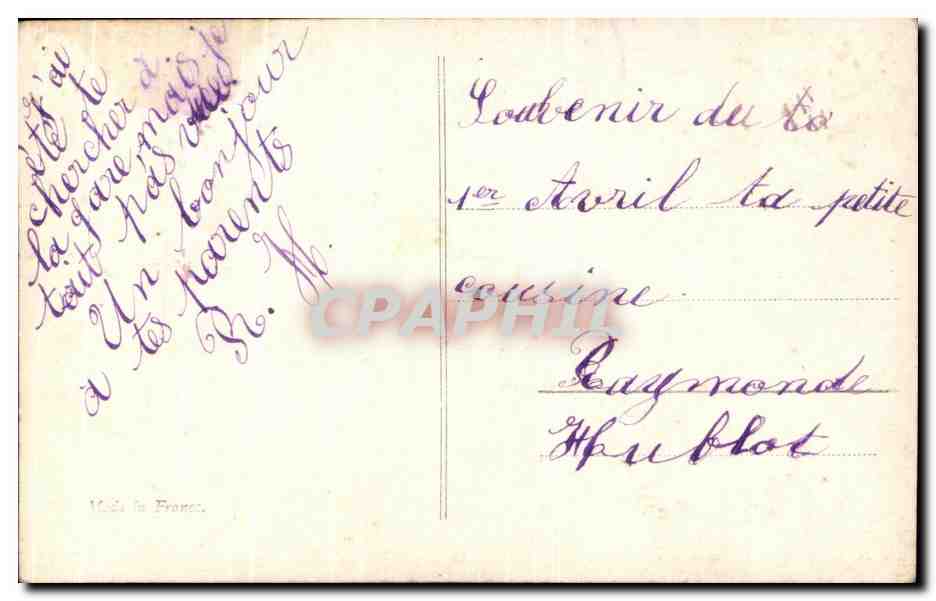 j'ai
été te
chercher à
la gare mais je
tait pas vue.
Un bonjour
à tes parents
R. H.
Souvenir du
1er Avril ta petite
cousine
Raymonde
Hublot
Made in France.
CPAPHIL